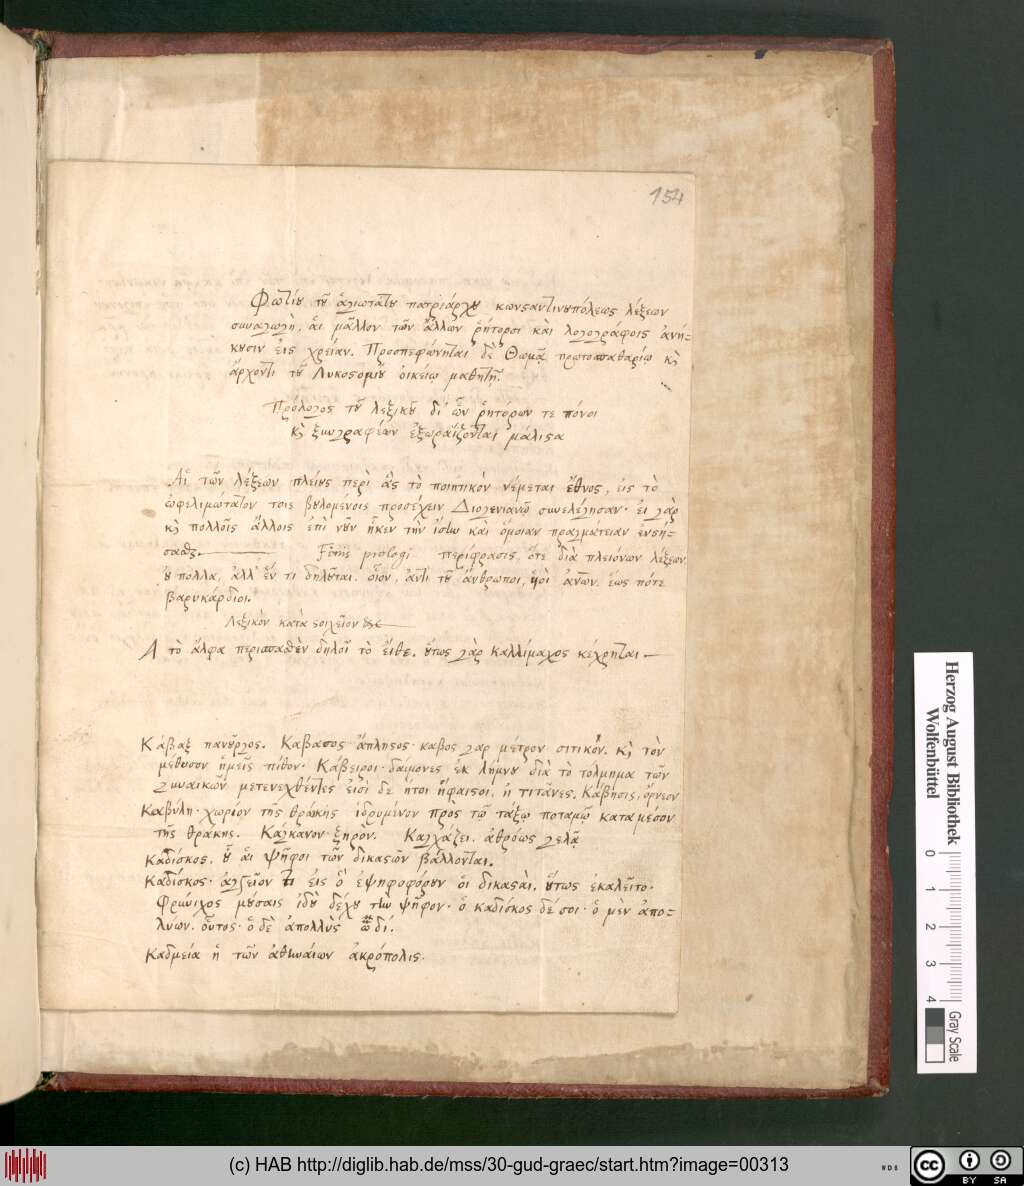 154
Φωτίου τοῦ ἁγιωτάτου πατριάρχου κωνσταντινουπόλεως λέξεων
συναγωγὴ, ἁι μᾶλλον τῶν ἄλλων ῥήτορσι καὶ λογογράφοις ἀνή-
κουσιν ἐις χρείαν. Προσπεφώνηται δὲ Θωμᾷ πρωτοσπαθαρίῳ κὶ
ἄρχοντι τοῦ Λυκοστομίου ὀικέιω μαθητῇ.
Πρόλογος τοῦ λεξικοῦ δι' ὧν ῥητόρων τε πόνοι
κὶ ξυγγραφέων ἐξωραΐζονται μάλιστα
Αἱ τῶν λέξεων πλείους περὶ ἃς τὸ ποιητικὸν νέμεται ἔθνος, ἐις τὸ
ὠφελιμώτατον τοις βουλομένοις προσέχειν Διογενιανῷ συνελέγησαν. ἐι γὰρ
κὶ πολλοῖς ἄλλοις ἐπὶ νοῦν ἧκεν τὴν ἴσην καὶ ὅμοιαν πραγμάτειαν ἐνστή-
σασθαι. Finis prologi περίφρασις, ὅτε διὰ πλειόνων λέξεων
ὀυ πολλὰ, ἀλλ' ἕν τι δηλοῦται. οἷον, ἀντὶ τοῦ ἄνθρωποι, ὑιοὶ ἀνων. ἕως πότε
βαρυκάρδιοι.
Λεξικὸν κατὰ στοιχεῖον
Α τὸ ἄλφα περισπασθὲν δηλοῖ τὸ ἔιθε. ὅυτως γὰρ Καλλίμαχος κέχρηται
Κάβαξ πανοῦργος. Κάβασος ἄπληστος· καβος γαρ μέτρον σιτικόν. κὶ τὸν
μέθυσον ἡμεῖς πίθον. Κάβειροι· δαίμονες ἐκ λήμνου διὰ τὸ τόλμημα τῶν
γυναικῶν μετενεχθέντες ἐισὶ δε ἤτοι ἥφαιστοι, ἢ τιτᾶνες. Κάβησις, ὄρνεον
Καβύλη· χωρίον τῆς θράκης ἱδρυμένον πρὸς τῷ τάξῳ ποταμῷ κατα μέσον
τῆς θρᾴκης. Κάγκανον· ξηρόν. Καγχάζει. ἀθρόως γελᾷ
Καδίσκος, οὗ ἁι ψῆφοι τῶν δικαστῶν βάλλονται.
Καδίσκος· ἀγγεῖον τι ἐις ὃ ἐψηφοφόρουν ὁι δικασταὶ, ὅυτως ἐκαλεῖτο.
Φρύνιχος μούσαις ἰδοὺ δέχου τὴν ψῆφον. ὁ καδίσκος δέ σοι· ὁ μὲν ἀπο-
λύων. οὗτος· ὁ δὲ ἀπολλὺς ὡδί.
Καδμεία ἡ τῶν ἀθηναίων ἀκρόπολις.
Herzog August Bibliothek
Wolfenbüttel
0 1 2 3 4
Gray Scale
(c) HAB http://diglib.hab.de/mss/30-gud-graec/start.htm?image=00313
WDB
cc BY SA